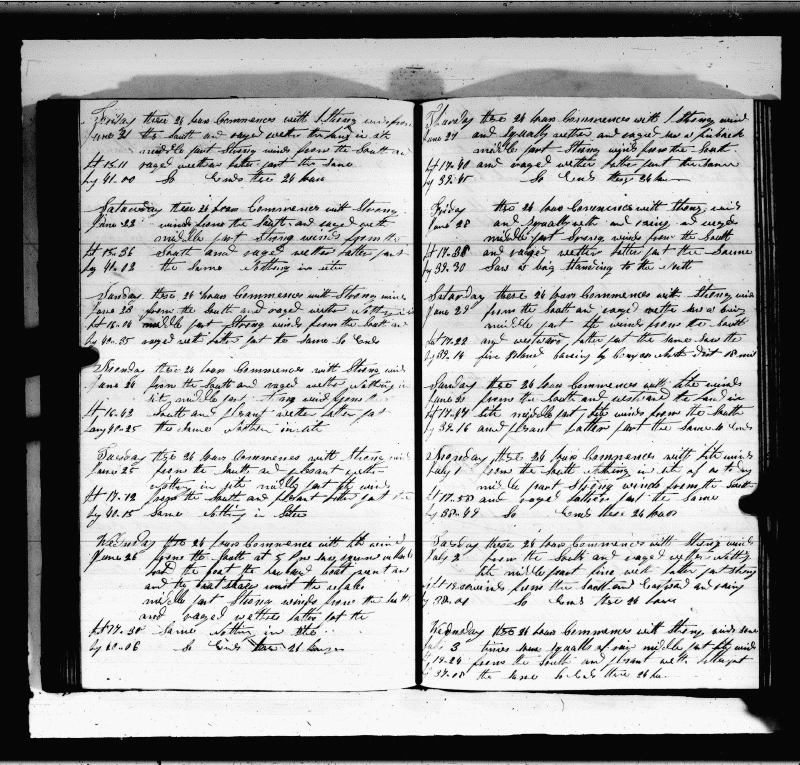 Friday these 24 hours Commences with Strong winds from
June 21 the South and raged wether the land in sit
middle part Strong winds from the South and
Lt 15.11 raged wether later part the Same
Lg 41.00 So Ends these 24 hours
Saturday these 24 hours Commences with Strong
June 22 winds from the South and raged weth
middle part Strong winds from the
Lt 15.36 South and raged wether latter part
Lg 41.03 the Same Nothing in site
Sunday these 24 hours Commences with Strong winds
June 23 from the South and raged wether Nothing in
Lt 16.04 middle part Strong winds from the South and
Lg 40.55 raged weth later part the Same So Ends
Moonday these 24 hours Commences with Strong winds
June 24 from the South and raged wether Nothing in
sit middle part Strong winds from the
Lt 16.43 South and plesant wether latter part
Lg 40.25 the Same Nothin in site
Tuesday these 24 hours Commences with Strong wind
June 25 from the South and plesant weth
nothing in site middle part winds
Lt 17.12 from the South and plesant later part the
Lg 40.15 Same Nothing in Site
Wednesday these 24 hours Commences with lite wind
June 26 from the South at 5
the boat the boat
and the the whales
middle part Strong winds from the South
and raged wether latter part the
Lt 17.38 Same Nothing in Site
Lg 40.06 So Ends these 24 hours
Thursday these 24 hours Commences with Strong wind
June 27 and Squally wether and raged saw a finback
middle part Strong winds from the South
Lt 17.40 and raged wether latter part the Same
Lg 39.45 So Ends these 24 hours
Friday these 24 hours Commences with Strong wind
June 28 and Squally weth and rainy and raged
middle part Strong winds from the South
Lt 17.38 and raged wether latter part the Same
Lg 39.30 Saw a barg Standing to the North
Saturday these 24 hours Commences with Strong wind
June 29 from the South and raged wethe saw a
middle part lite winds from the South
Lt 17.22 and westward later part the Same Saw the
Lg 39.14 Island baring by Compas North Dist 18 miles
Sunday these 24 hours Commences with lite winds
June 30 from the South and westward the land in
Lt 17.47 site middle part lite winds from the South
Lg 39.16 and plesant latter part the Same So Ends
Moonday these 24 hours Commences with lite winds
July 1 from the South nothing in site of us to day
middle part Strong winds from the South
Lt 17.58 and raged latter part the Same
Lg 38.49 So Ends these 24 hours
Tuesday these 24 hours Commences with Strong winds
July 2 from the South and raged wether Nothing
site middle part fine weth latter part Strong
winds from the South and Eastward and rainy
Lg 38.01 So Ends these 24 hours
Wednesday these 24 hours Commences with Strong winds some
July 3 times some Squalls of rain middle part winds
Lt 19.24 from the South and plesant weth later part
Lg 37.08 the Same So Ends these 24 hours